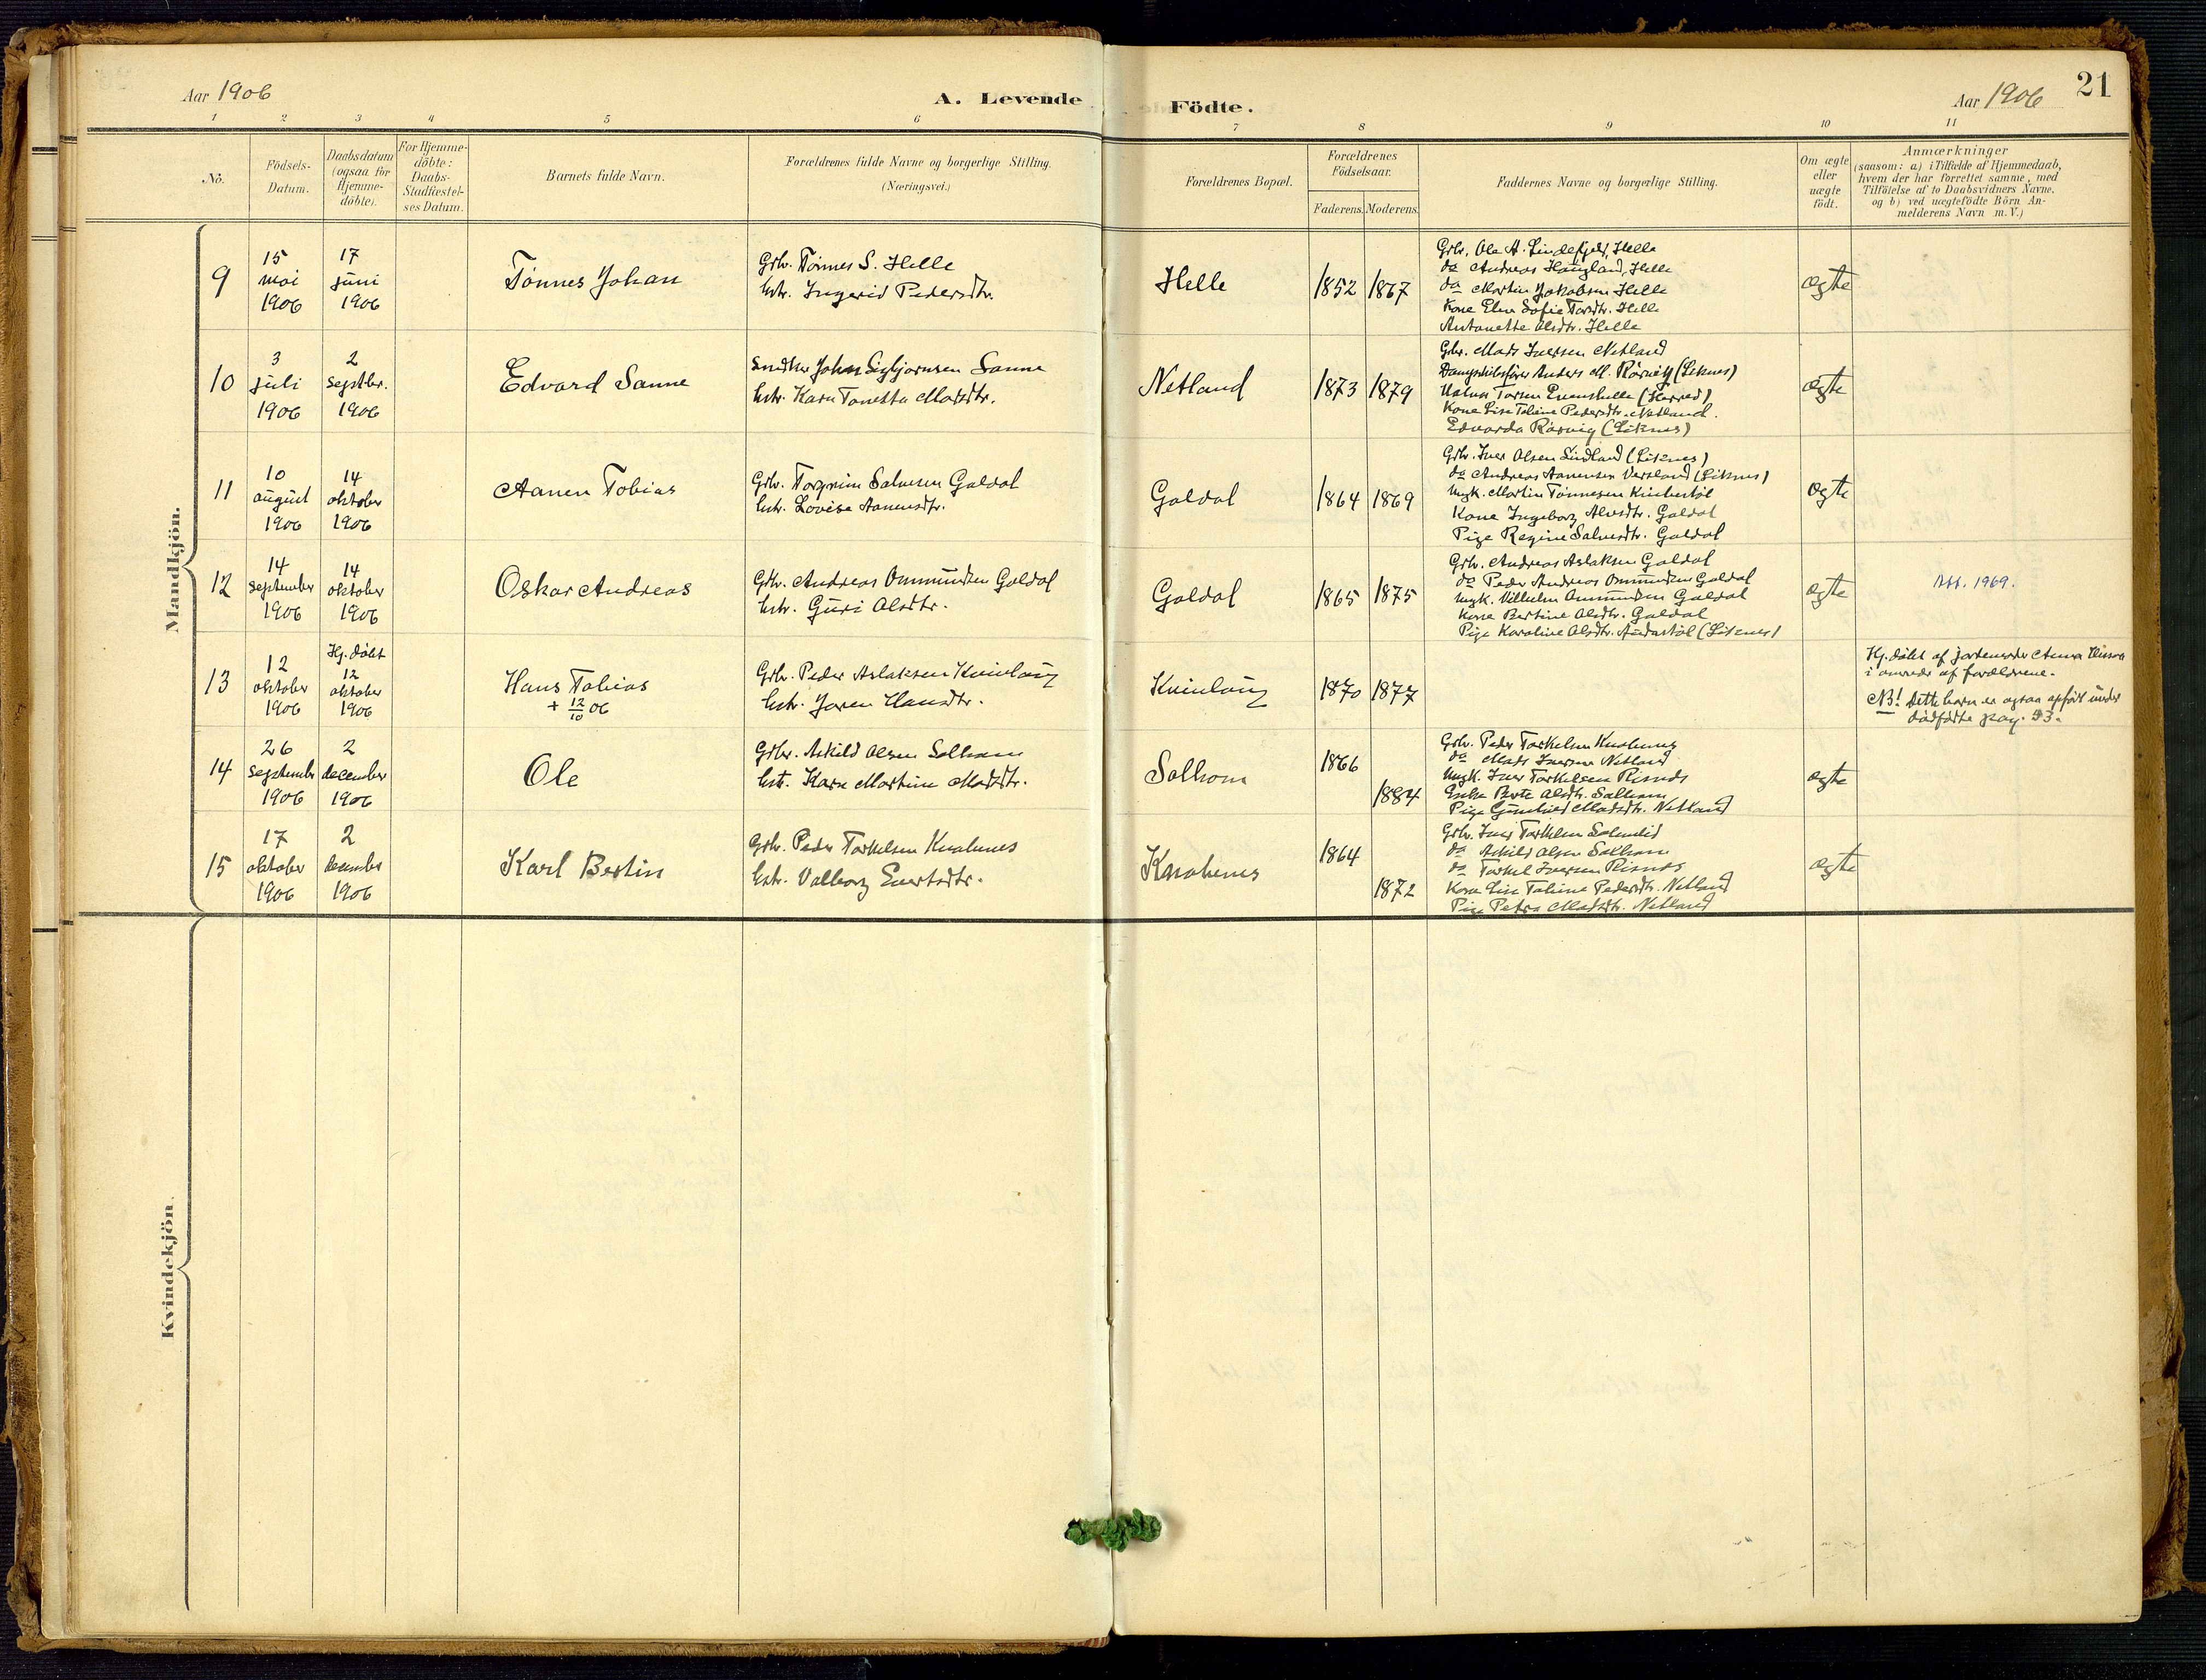 Aar 1906
A. Levende Fødte.
Aar 1906
21
1 2 3 4 5 6 7 8 9 10 11
No.
Födsels-
Datum.
Daabsdatum
(ogsaa for
Hjemme-
döbte).
For Hjemme-
döbte:
Daabs-
Stadfæstel-
ses Datum.
Barnets fulde Navn.
Forældrenes fulde Navne og borgerlige Stilling.
(Næringsvei.)
Forældrenes Bopæl.
Forældrenes
Födselsaar.
Faderens. Moderens.
Faddernes Navne og borgerlige Stilling.
Om ægte
eller
uægte
födt.
Anmærkninger
(saasom: a) i Tilfælde af Hjemmedaab,
hvem der har forrettet samme, med
Tilföielse af to Daabsvidners Navne,
og b) ved uægtefödte Börn An-
melderens Navn m.V.)
Mandkjön.
9
15
mai
1906
17
juni
1906
Tønnes Johan
Grbr. Tønnes S. Helle
Hstr. Ingerid Pedersdtr.
Helle
1852 1867
Grbr. Ole A. Lindefjeld, Helle
do Andreas Haugland, Helle
do Martin Jakobsen Helle
Kone Elen Sofie Torsdtr. Helle
Antonette Olsdtr. Helle
ægte
10
3
juli
1906
2
septbr.
1906
Edvard Sanne
Snedker Johan Sigbjørnsen Sanne
Hstr. Karen Tonetta Madsdtr.
Netland
1873 1879
Grbr. Mads Iversen Netland
Dampskibsfører Anders M. Rørvig (Liknes)
Torsen Eienshelle (Herred)
Kone Lise Tobine Pedersdtr. Netland.
Edvarda Rørvig (Liknes)
ægte
11
10
august
1906
14
oktober
1906
Aanen Tobias
Grbr. Torgrim Salvesen Galdal
Hstr. Lovise Aanensdtr.
Galdal
1864 1869
Grbr. Iver Olsen Lindland (Liknes)
do Andreas Aanensen Versland (Liknes)
Ungk. Martin Tønnesen
Kone Ingeborg Alvsdtr. Galdal
Pige Regine Salvesdtr. Galdal
ægte
12
14
september
1906
14
oktober
1906
Oskar Andreas
Grbr. Andreas Ommundsen Galdal
Hstr. Guri Olsdtr.
Galdal
1865 1875
Grbr. Andreas Aslaksen Galdal
do Peder Andreas Ommundsen Galdal
Ungk. Vilhelm Ommundsen Galdal
Kone Bertine Olsdtr. Galdal
Pige Karoline Olsdtr. (Liknes)
ægte
Att. 1969.
13
12
oktober
1906
Hj. døbt
12
oktober
1906
Hans Tobias
+ 12/10 06
Grbr. Peder Aslaksen Kvinlaug
Hstr. Joren Hansdtr.
Kvinlaug
1870 1877
Hj. døbt af jordemoder Anna
i nærvær af forældrene.
NB! Dette barn er ogsaa opført under
dødfødte pag. 93.
14
26
september
1906
2
december
1906
Ole
Grbr. Askild Olsen Solhom
Hstr. Karen Martine Madsdtr.
Solhom
1866
1884
Grbr. Peder Torkelsen Knabenes
do Mads Iversen Netland
Ungk. Iver Torkelsen Risnes
Enke Berte Olsdtr. Solhom
Pige Gunhild Madsdtr. Netland
ægte
15
17
oktober
1906
2
december
1906
Karl Bertin
Grbr. Peder Torkelsen Knabenes
Hstr. Valborg Evertsdtr.
Knabenes
1864
1872
Grbr. Iver Torkelsen Solmelid
do Askild Olsen Solhom
do Torkel Iversen Risnes
Kone Lise Tobine Pedersdtr. Netland
Pige Petra Madsdtr. Netland
ægte
Kvindekjön.